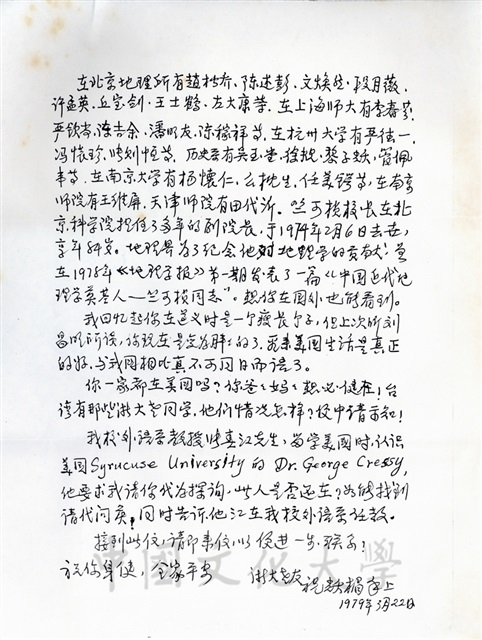 在北京地理所有趙松乔、陈述彭、文焕然、段月薇、
许孟英、丘宝剑、王士鹤、左大康等。在上海师大有李春芬、
严钦尚、陈吉余、潘明友、陈穆祥等，在杭州大学有严德一、
冯怀珍、等，历史系有黎子耀、
等，在南京大学有杨怀仁、任美锷等，在南京
师院有王维屏，天津师院有田代沂。竺可桢校长在北
京科学院担任了多年的副院长，于1974年2月6日去世，
享年84岁。地理界为了纪念他对地理学的贡献，曾
在1978年《地理学报》第一期发表了一篇《中国近代地
理学奠基人——竺可桢同志》。想你在国外也能看到。
我回忆起你在遵义时是一个瘦长个子，但上次听刘
昌明所谈，你现在是变为胖的了，究美国生活是真正
的好，与我国相比真不可同日而语了。
你一家都在美国吗？你爸、妈、想必健在！台
湾有那些浙大老同学，他们情况怎样？便中请示知！
我校外语系教授喜江先生，留学美国时，认识
美国Syrucuse University 的 Dr. George Cressy,
他要求我请你代为探询，此人是否还在？如能找到
请代问负，同时告诉他江在我校外语系任教。
接到此信，请即来信，以便进一步联系！
祝你身健，全家平安 浙大老友 上
1979年3月22日
中國文化大學